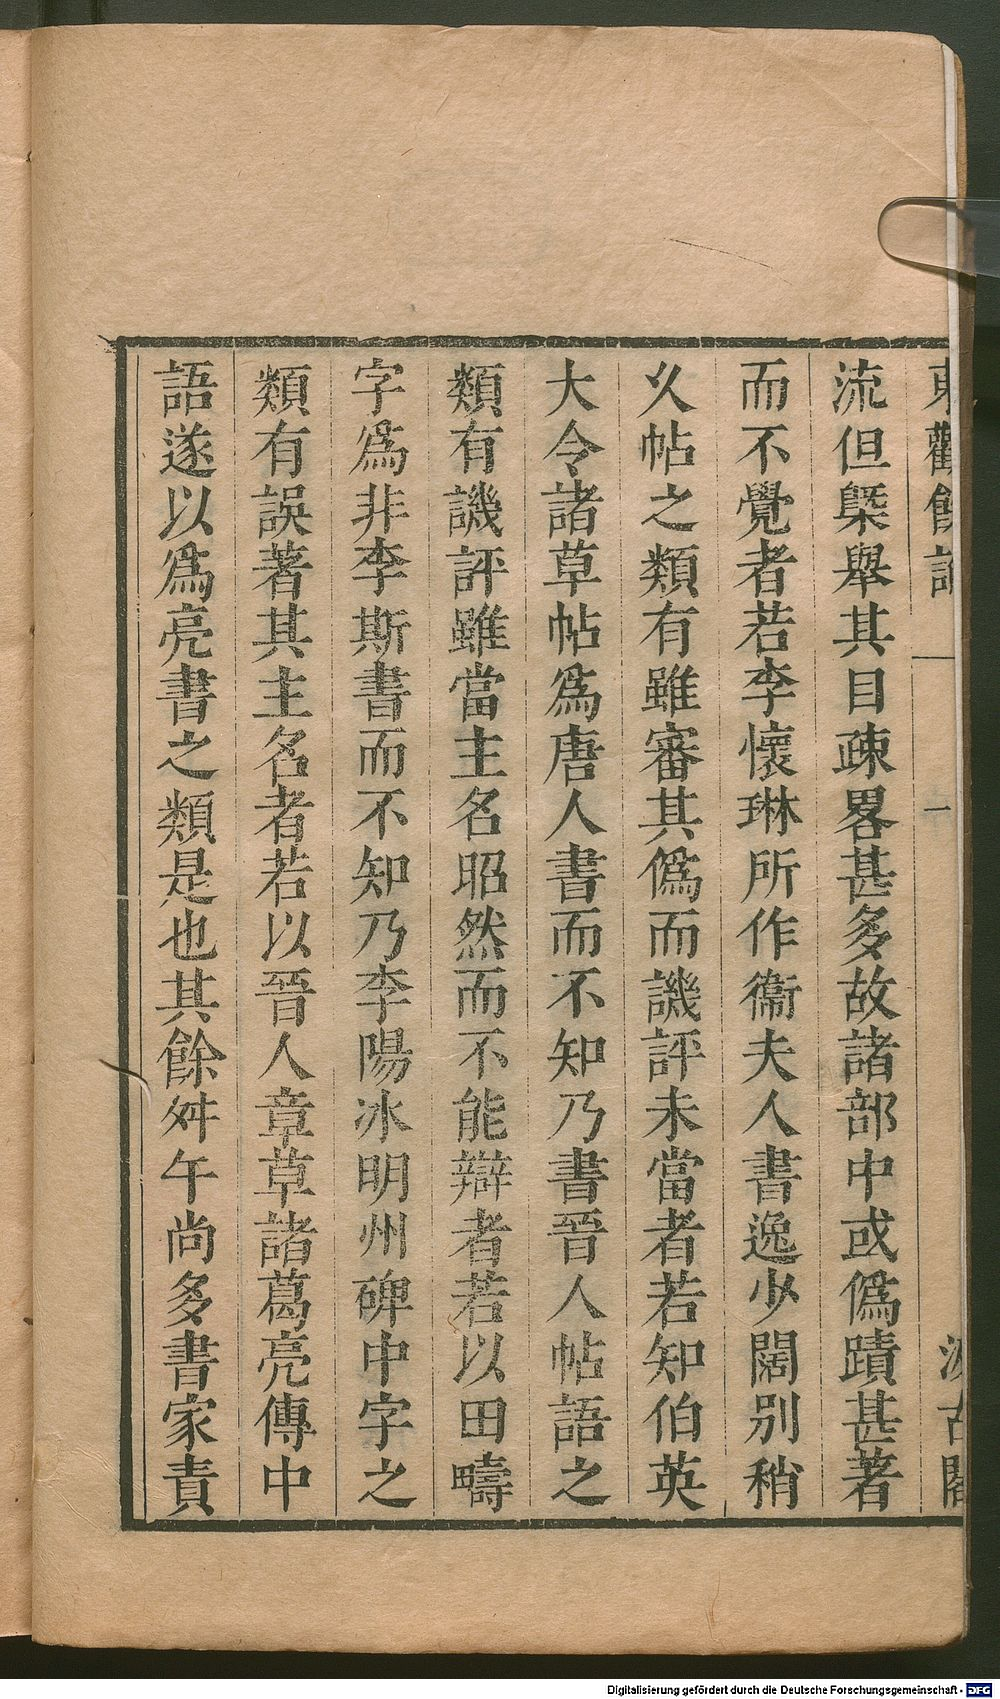 東觀餘論
一
汲古閣
流但槩舉其目疎畧甚多故諸部中或僞蹟甚著
而不覺者若李懷琳所作衞夫人書逸少闊别稍
乆帖之類有雖審其僞而譏評未當者若知伯英
大令諸草帖爲唐人書而不知乃書晉人帖語之
類有譏評雖當主名昭然而不能辯者若以田疇
字爲非李斯書而不知乃李陽冰明州碑中字之
類有誤著其主名者若以晉人章草諸葛亮傳中
語遂以爲亮書之類是也其餘舛午尚多書家責
Digitalisierung gefördert durch die Deutsche Forschungsgemeinschaft - DFG